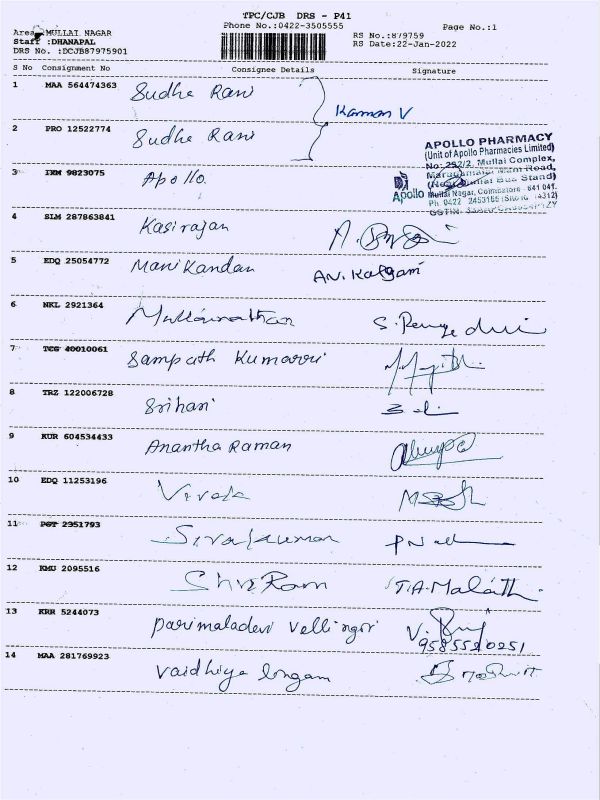 TPC/CJB DRS - P41
Phone No.:0422-3505555
Page No.:1
Area :MULLAI NAGAR
Staff :DHANAPAL
DRS No. :DCJB87975901
RS No.:879759
RS Date:22-Jan-2022
S No Consignment No Consignee Details Signature
1 MAA 564474363 Sudha Rani
Kannan V
2 PRO 12522774 Sudha Rani
APOLLO PHARMACY
(Unit of Apollo Pharmacies Limited)
No: 292/2, Mullai Complex,
Marudhamalai Main Road,
3 IXM 9823075 Apollo
Apollo Mullai Nagar, Coimbatore - 641 041.
4 SLM 287863841 Kasirajan
5 EDQ 25054772 Manikandan AN. Kalyani
6 NKL 2921364
7 TCG 40010061 Sampath Kumarri
8 TRZ 122006728 Srihari
9 KUR 604534433 Anantha Raman
10 EDQ 11253196 Vivek
11 PGT 2351793 Sivakumar
12 KMU 2095516 Shri Ram T.A. Malathi
13 KRR 5244073 Parimaladevi Vellingiri
14 MAA 281769923 Vaidhiya lingam